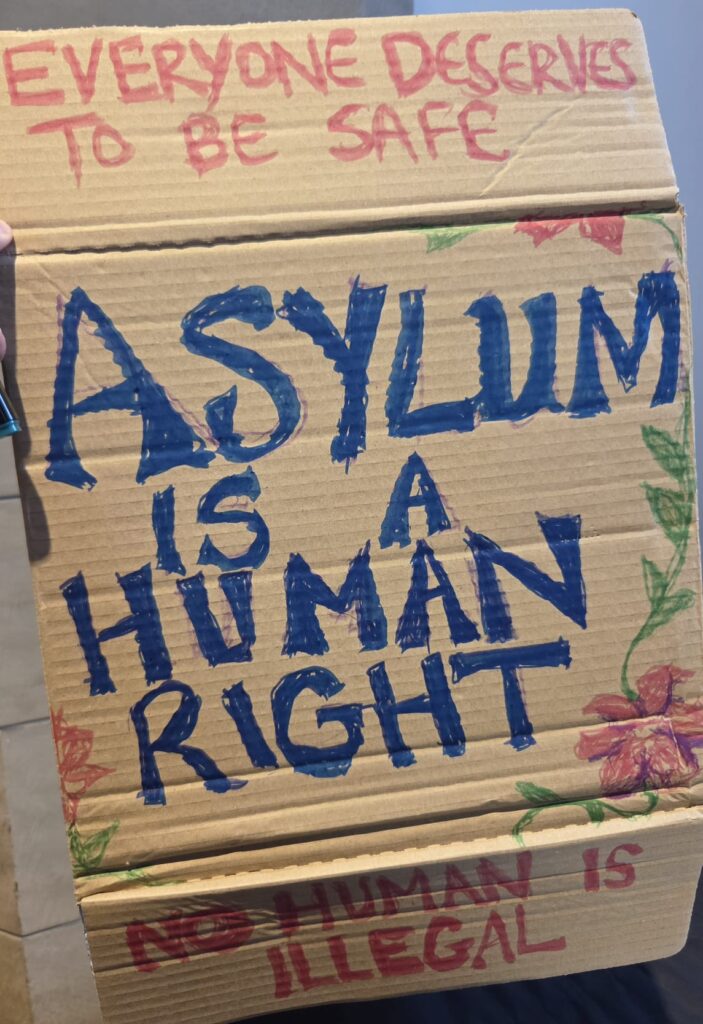 EVERYONE DESERVES
TO BE SAFE
ASYLUM
IS A
HUMAN
RIGHT
NO HUMAN IS
ILLEGAL